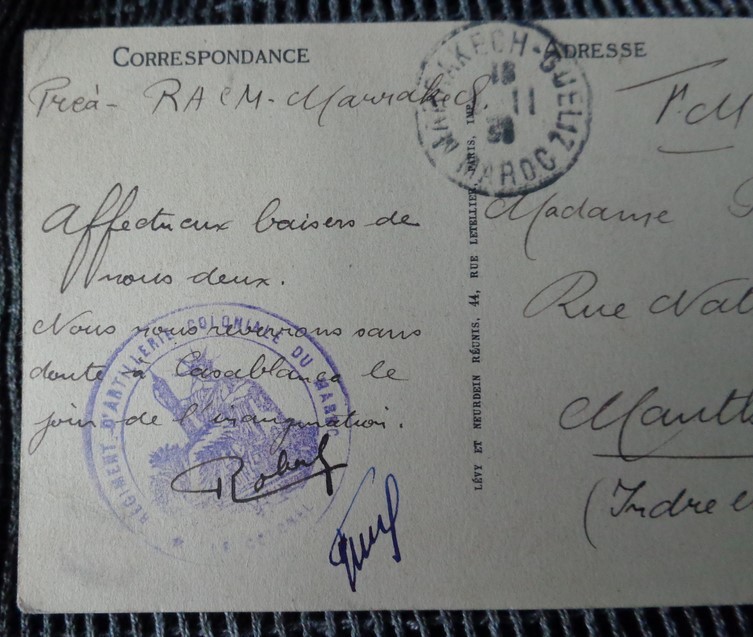 CORRESPONDANCE
ADRESSE
RACM - Marrakech.
MARRAKECH-GUELIZ
18
11
MAROC
F.M
Affectueux baisers de
nous deux.
Nous nous reverrons sans
doute à Casablanca le
jour de l'inauguration.
Robert
RÉGIMENT D'ARTILLERIE COLONIALE DU MAROC
LE COLONEL
LÉVY ET NEURDEIN RÉUNIS, 44, RUE LETELLIER, PARIS, IMP.
Madame
Rue Nat
Manth
(Indre